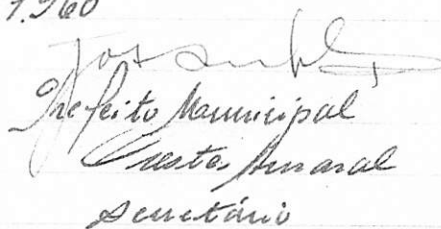 1.960
Prefeito Municipal
Orestes Amaral
Secretário